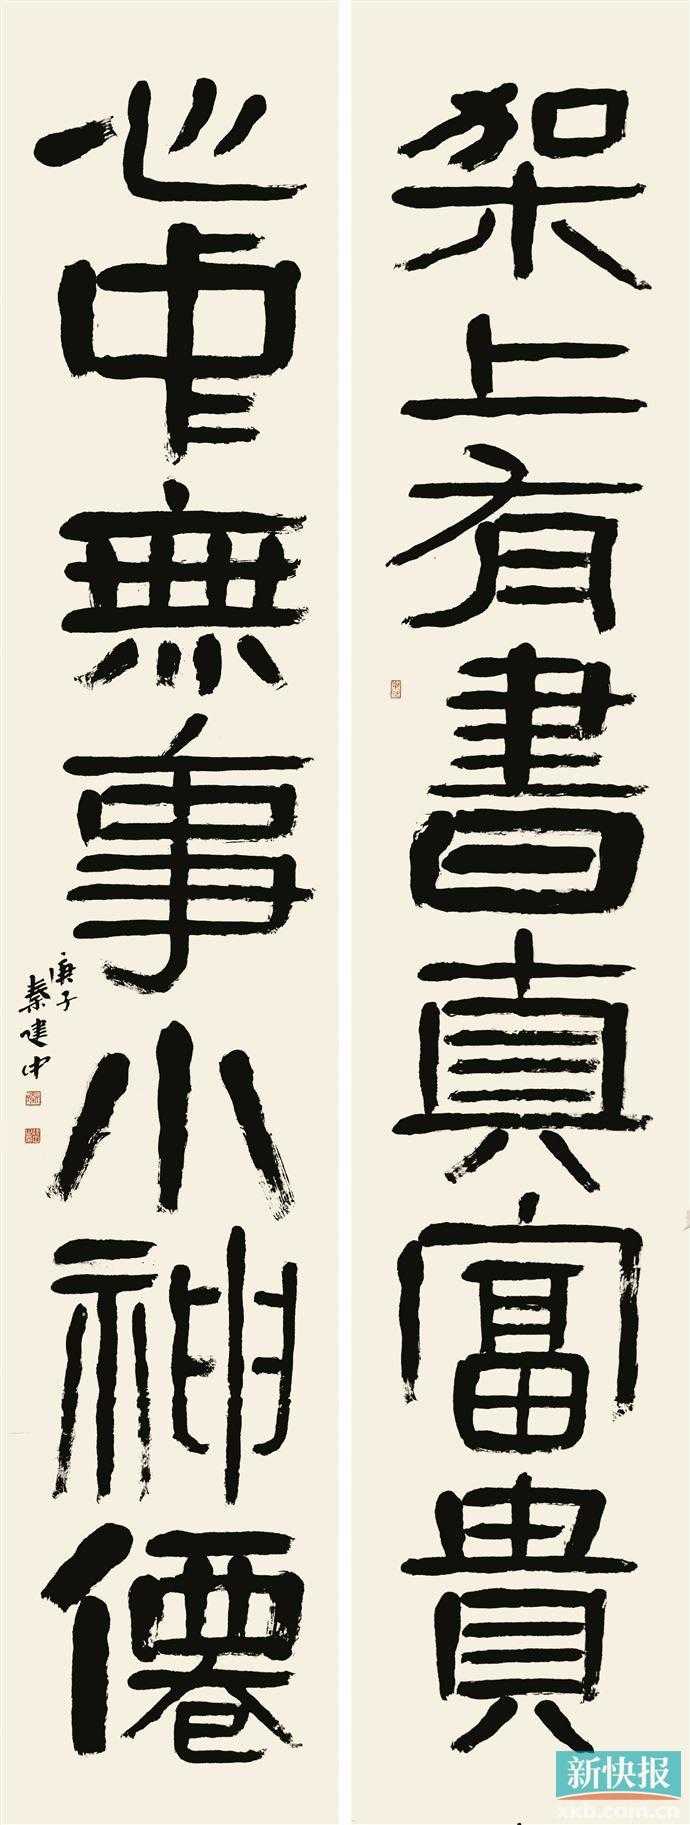 架上有書真富貴
心中無事小神僊
庚子
秦建中
新快报
xkb.com.cn